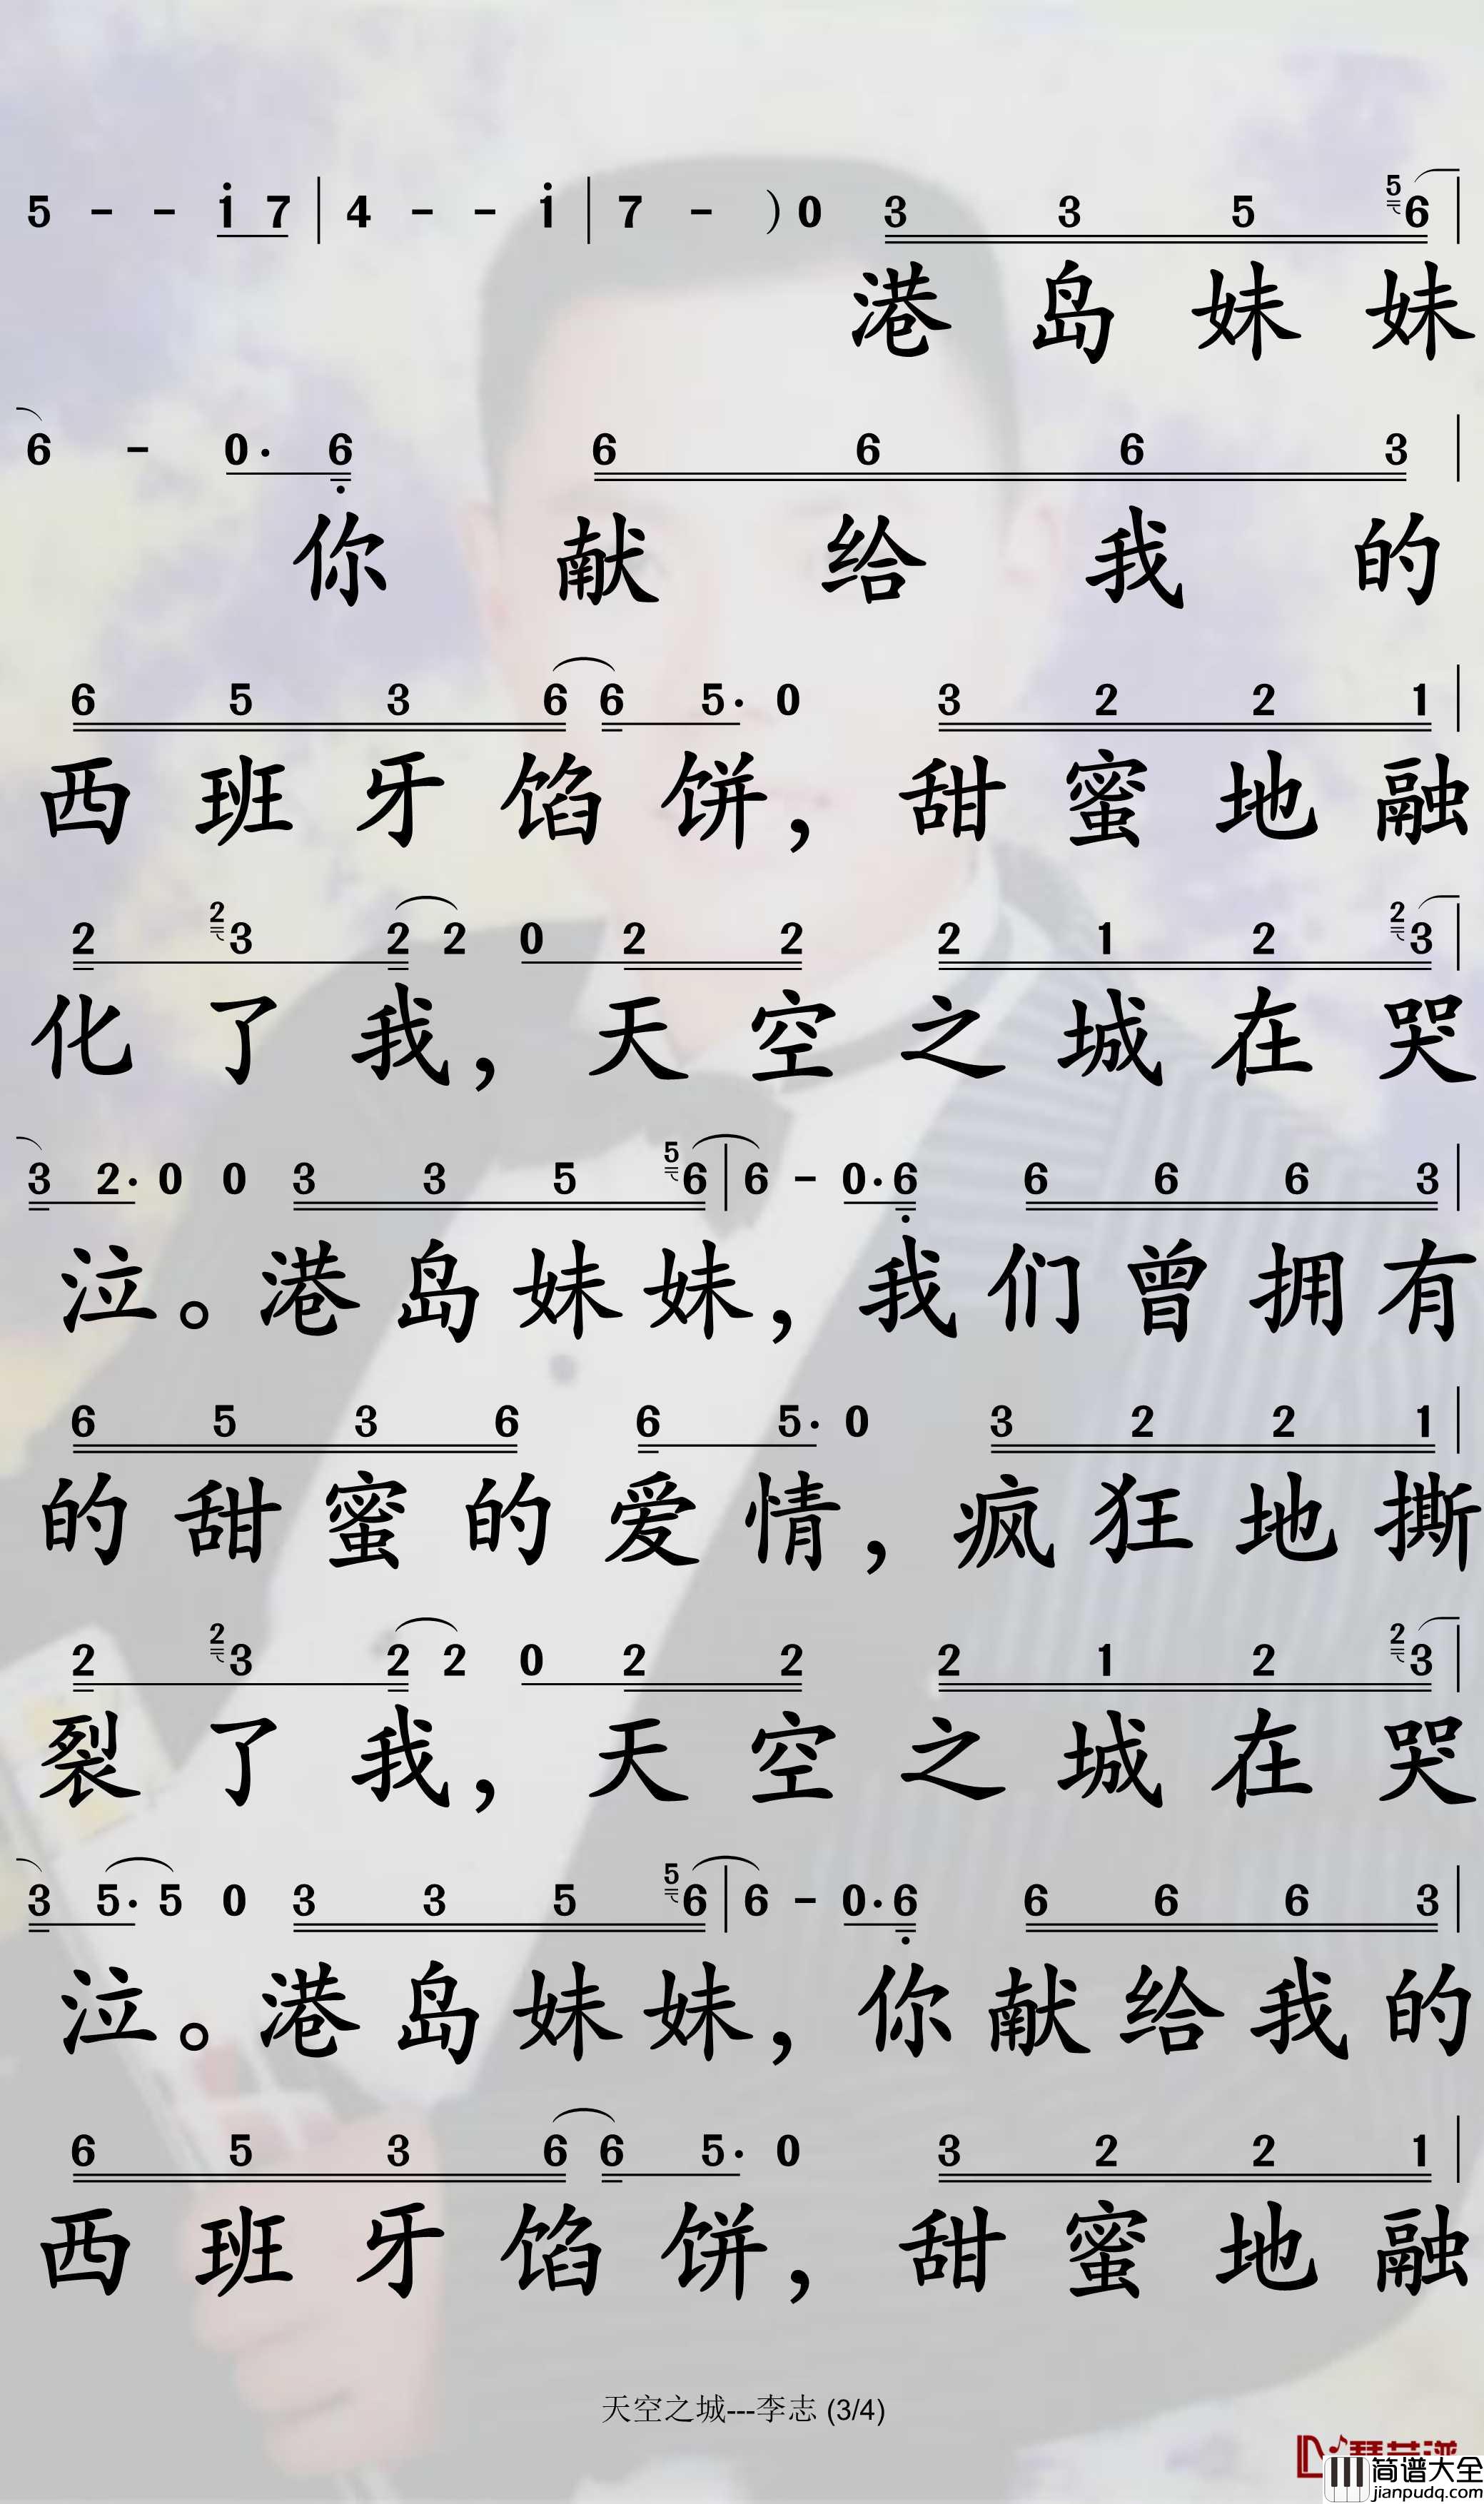 5 - - i 7 | 4 - - i | 7 - ) 0 3 3 5 5 6 |
港 岛 妹 妹
6 - 0· 6 6 6 6 3 |
你 献 给 我 的
6 5 3 6 6 5· 0 3 2 2 1 |
西 班 牙 馅 饼， 甜 蜜 地 融
2 2 3 2 2 0 2 2 2 1 2 2 3 |
化 了 我， 天 空 之 城 在 哭
3 2· 0 0 3 3 5 5 6 | 6 - 0· 6 6 6 6 3 |
泣。 港 岛 妹 妹， 我 们 曾 拥 有
6 5 3 6 6 5· 0 3 2 2 1 |
的 甜 蜜 的 爱 情， 疯 狂 地 撕
2 2 3 2 2 0 2 2 2 1 2 2 3 |
裂 了 我， 天 空 之 城 在 哭
3 5· 5 0 3 3 5 5 6 | 6 - 0· 6 6 6 6 3 |
泣。 港 岛 妹 妹， 你 献 给 我 的
6 5 3 6 6 5· 0 3 2 2 1 |
西 班 牙 馅 饼， 甜 蜜 地 融
天空之城---李志 (3/4)
简谱大全
jianpudq.com